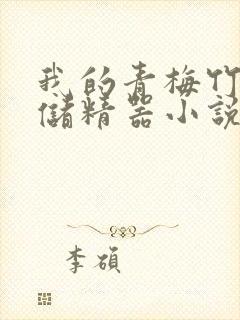 我的青梅竹
储精器小說
李碩